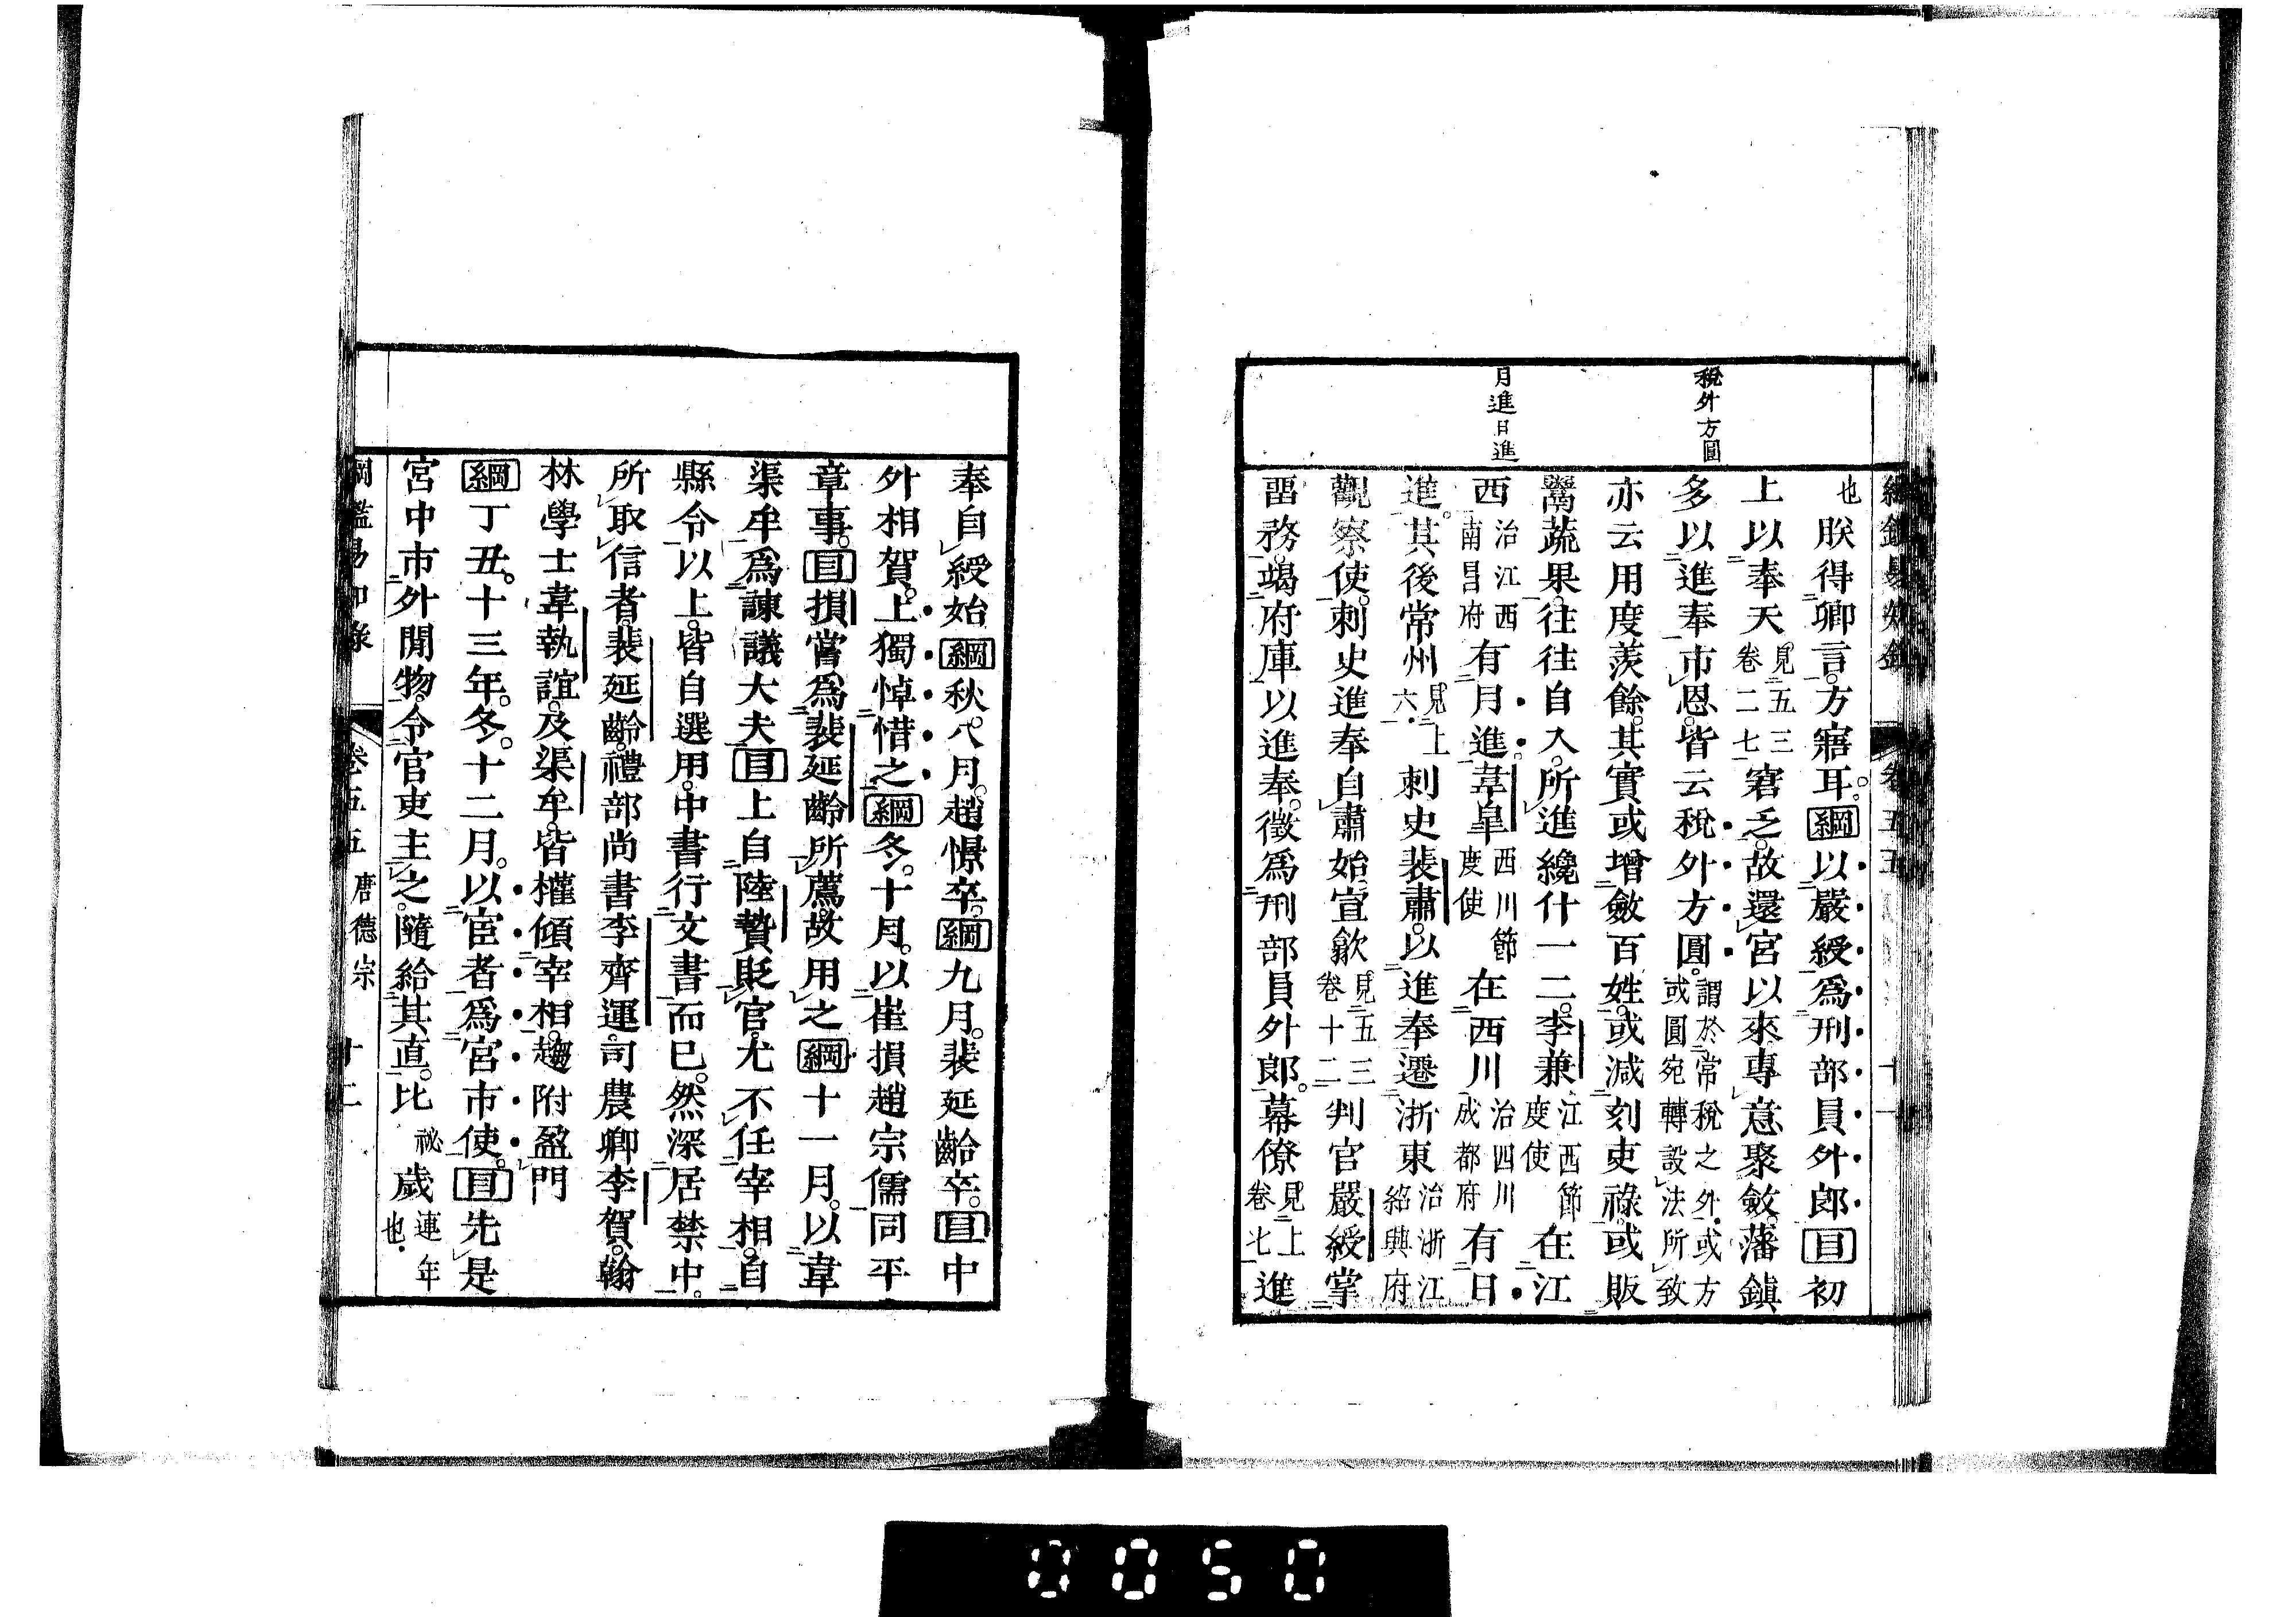 稅外方圓
月進日進
也朕得卿言方寤耳綱以嚴綬爲刑部員外郎目初
上以奉天見五三卷二七窘乏故還宮以來專意聚斂藩鎭
多以進奉市恩皆云稅外方圓謂於常稅之外或方或圓宛轉設法所致
亦云用度羨餘其實或增斂百姓或減刻吏祿或販
鬻蔬果往往自入所進纔什一二李兼江西節度使在江
西治江西南昌府有月進韋臯西川節度使在西川治四川成都府有日
進其後常州見上六刺史裴肅以進奉遷浙東治浙江紹興府
觀察使刺史進奉自肅始宣歙見五三卷十二判官嚴綬掌
畱務竭府庫以進奉徵爲刑部員外郎幕僚見上卷七進
卷五五
十一
奉自綬始綱秋八月趙憬卒綱九月裴延齡卒目中
外相賀上獨悼惜之綱冬十月以崔損趙宗儒同平
章事目損嘗爲裴延齡所薦故用之綱十一月以韋
渠牟爲諫議大夫目上自陸贄貶官尤不任宰相自
縣令以上皆自選用中書行文書而已然深居禁中
所取信者裴延齡禮部尚書李齊運司農卿李賀翰
林學士韋執誼及渠牟皆權傾宰相趨附盈門
綱丁丑十三年冬十二月以宦者爲宮市使目先是
宮中市外閒物令官吏主之隨給其直比祕歲連年也
綱鑑易知錄
卷五五
唐德宗
十二